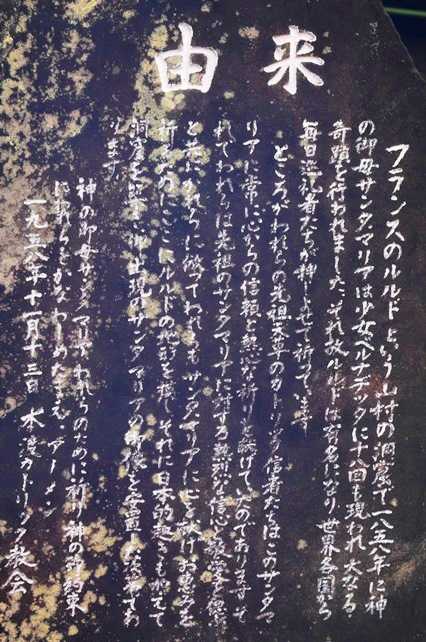 由来
フランスのルルドという山村の洞窟で一八五八年に神
の御母サンタマリアは少女ベルナデッタに十八回も現われ大なる
奇蹟を行われました。それ故ルルドは有名になり世界各国から
毎日巡礼者たちが神 せて祈っています
ところがわれらの先祖天草のカトリック信者たちはこのサンタマ
リアに常に心からの信頼と熱心な祈りを続けていたのであります。そ
れでわれらは先祖のサンタマリアに対する熱烈な信心と敬愛とを偲ぶ
と共にかれらに倣ってわれらもサンタマリアに心を献げお恵みを
祈るためにここにルルドの地形を模しそれに日本的趣きも加えて
洞窟を設け 御出現のサンタマリアの御像を安置した次第であ
ります
神の御母サンタマリアわれらのために祈り神の御約束
に我らをかなわしめたまえ アーメン
一九五八年十一月十三日 本渡カトリック教会